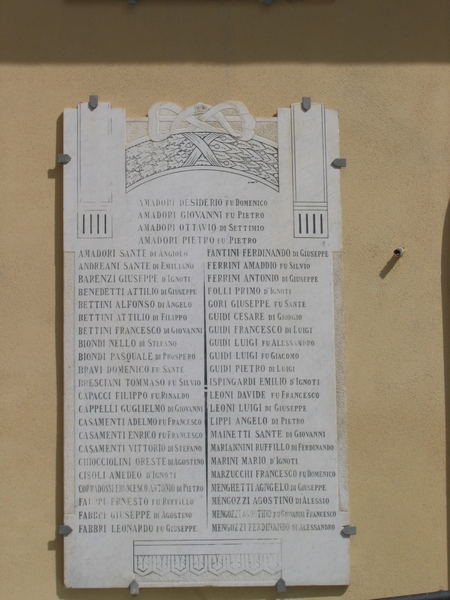 AMADORI DESIDERIO FU DOMENICO
AMADORI GIOVANNI FU PIETRO
AMADORI OTTAVIO DI SETTIMIO
AMADORI PIETRO FU PIETRO
AMADORI SANTE DI ANGIOLO
ANDREANI SANTE DI EMILIANO
BARENZI GIUSEPPE D'IGNOTI
BENEDETTI ATTILIO DI GIUSEPPE
BETTINI ALFONSO DI ANGELO
BETTINI ATTILIO DI FILIPPO
BETTINI FRANCESCO DI GIOVANNI
BIONDI NELLO DI STEFANO
BIONDI PASQUALE DI PROSPERO
BRAVI DOMENICO FU SANTE
BRESCIANI TOMMASO FU SILVIO
CAPACCI FILIPPO FU RINALDO
CAPPELLI GUGLIELMO DI GIOVANNI
CASAMENTI ADELMO FU FRANCESCO
CASAMENTI ENRICO FU FRANCESCO
CASAMENTI VITTORIO DI STEFANO
CHIOCCIOLINI ORESTE DI AGOSTINO
CISOLI AMEDEO D'IGNOTI
FRANCESCO ANTONIO DI PIETRO
ERNESTO FU
FABBRI GIUSEPPE DI AGOSTINO
FABBRI LEONARDO FU GIUSEPPE
FANTINI FERDINANDO DI GIUSEPPE
FERRINI AMADDIO FU SILVIO
FERRINI ANTONIO DI GIUSEPPE
FOLLI PRIMO D'IGNOTI
GORI GIUSEPPE FU SANTE
GUIDI CESARE DI GIORGIO
GUIDI FRANCESCO DI LUIGI
GUIDI LUIGI FU ALESSANDRO
GUIDI LUIGI FU GIACOMO
GUIDI PIETRO DI LUIGI
ISPINGARDI EMILIO D'IGNOTI
LEONI DAVIDE FU FRANCESCO
LEONI LUIGI DI GIUSEPPE
LIPPI ANGELO DI PIETRO
MAINETTI SANTE DI GIOVANNI
MARIANNINI RUFFILLO DI FERDINANDO
MARINI MARIO D'IGNOTI
MARZUCCHI FRANCESCO FU DOMENICO
MENGHETTI AGNGELO DI GIUSEPPE
MENGOZZI AGOSTINO DI ALESSIO
MENGOZZI FU GIOVANNI FRANCESCO
MENGOZZI FERDINANDO DI ALESSANDRO